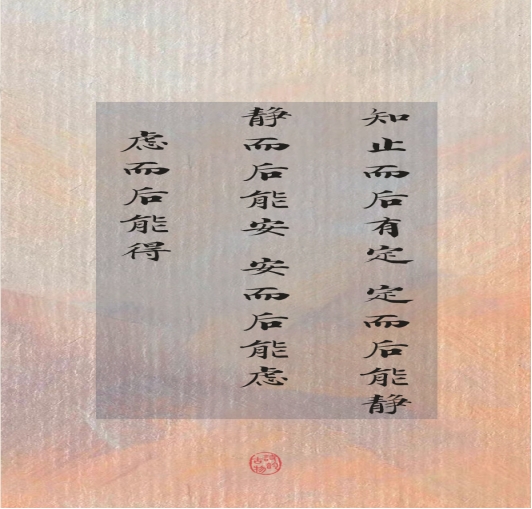 知止而后有定 定而后能静
静而后能安 安而后能虑
虑而后能得